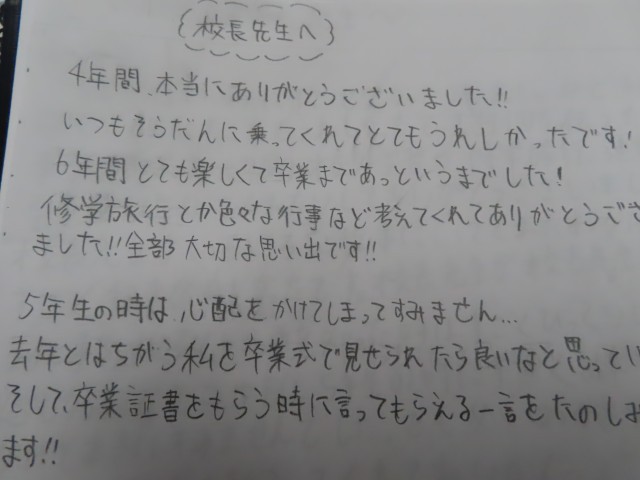 校長先生へ
4年間、本当にありがとうございました!!
いつもそうだんに乗ってくれてとてもうれしかったです!
6年間とても楽しくて卒業まであっというまでした!
修学旅行とか色々な行事など考えてくれてありがとうござ
ました!!全部大切な思い出です!!
5年生の時は、心配をかけてしまってすみません...
去年とはちがう私を卒業式で見せられたら良いなと思ってい
そして、卒業証書をもらう時に言ってもらえる一言をたのしみ
ます!!